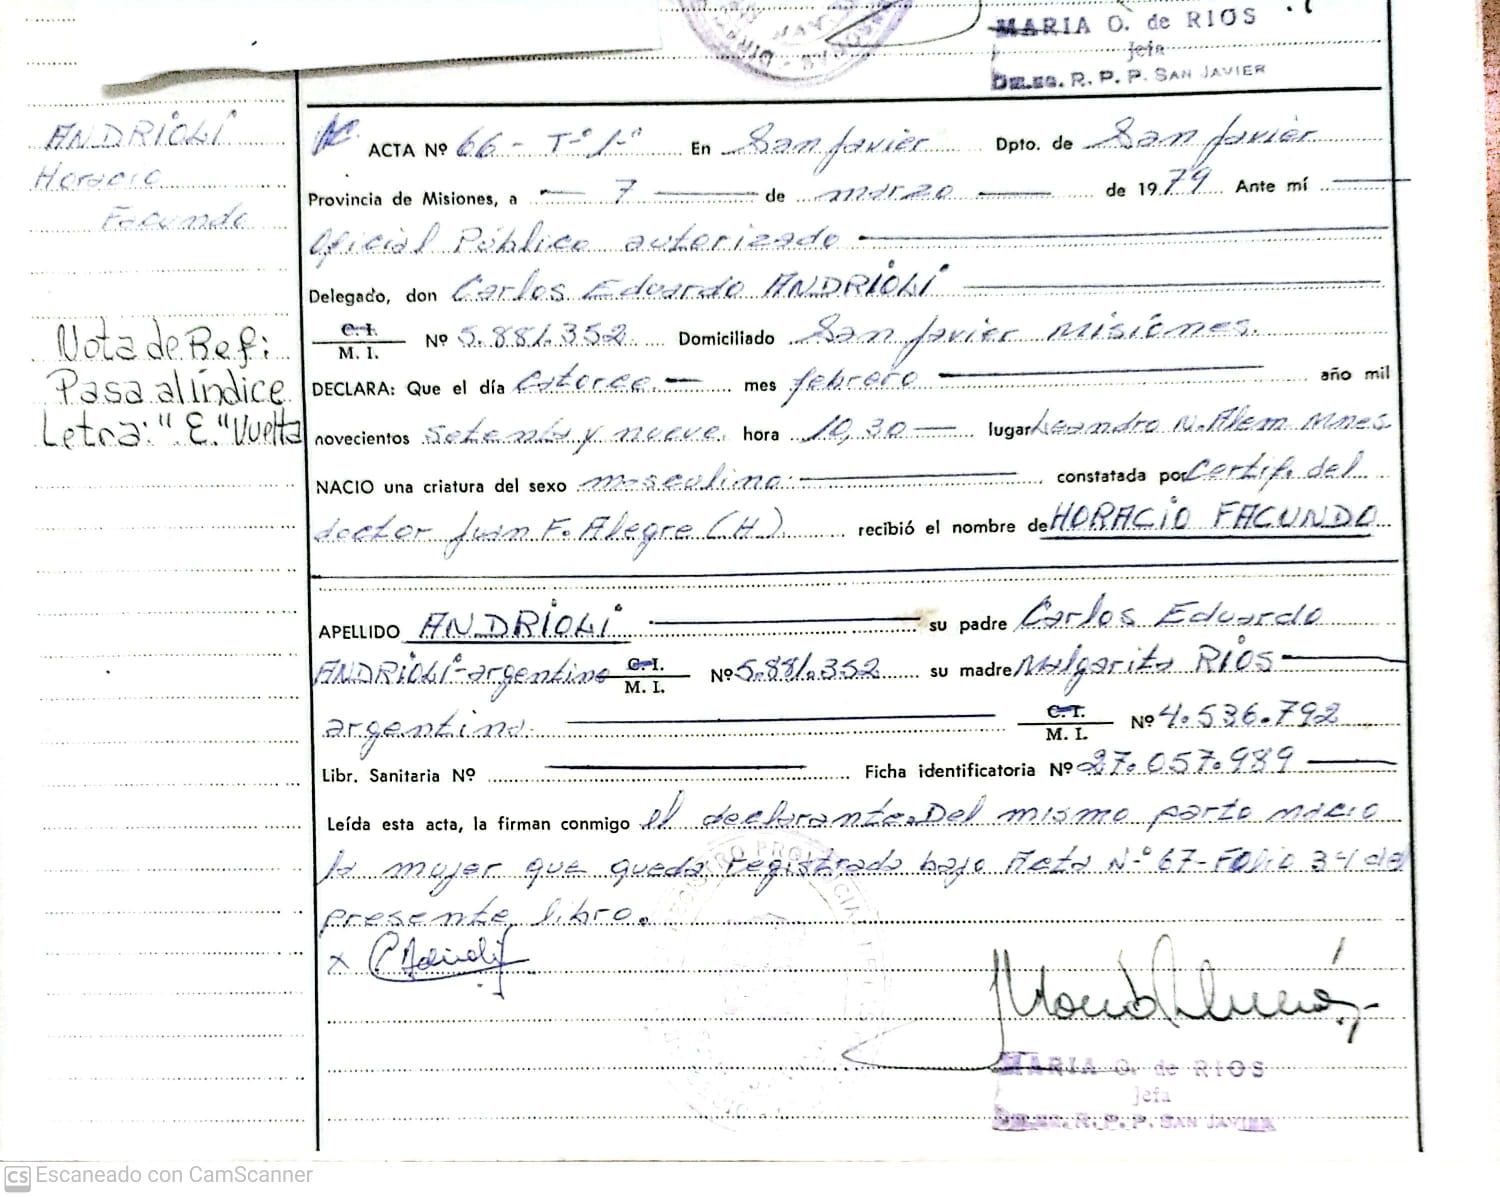 MARIA O. de RIOS
Jefa
DELEG. R. P. P. SAN JAVIER
ANDRIOLI
Horacio
Facundo
Nota de Ref:
Pasa al índice
Letra: "E." Vuelta
ACTA Nº 66 - Tº 1º En San Javier Dpto. de San Javier
Provincia de Misiones, a 7 de marzo de 1979 Ante mí
Oficial Público autorizado
Delegado, don Carlos Eduardo ANDRIOLI
C. I.
M. I. Nº 5.881.352 Domiciliado San Javier Misiones.
DECLARA: Que el día catorce mes febrero año mil
novecientos setenta y nueve hora 10,30 lugar Leandro N. Alem Mnes.
NACIO una criatura del sexo masculino constatada por Certif. del
doctor Juan F. Alegre (H) recibió el nombre de HORACIO FACUNDO
APELLIDO ANDRIOLI su padre Carlos Eduardo
ANDRIOLI - argentino C. I. M. I. Nº 5.881.352 su madre Malgarita RIOS
argentina. C. I. M. I. Nº 4.536.792
Libr. Sanitaria Nº Ficha identificatoria Nº 27.057.989
Leída esta acta, la firman conmigo el declarante. Del mismo parto nacio
la mujer que queda registrada bajo Acta Nº 67 - Folio 34 del
presente libro.
x
MARIA O. de RIOS
Jefa
DELEG. R. P. P. SAN JAVIER
CS Escaneado con CamScanner